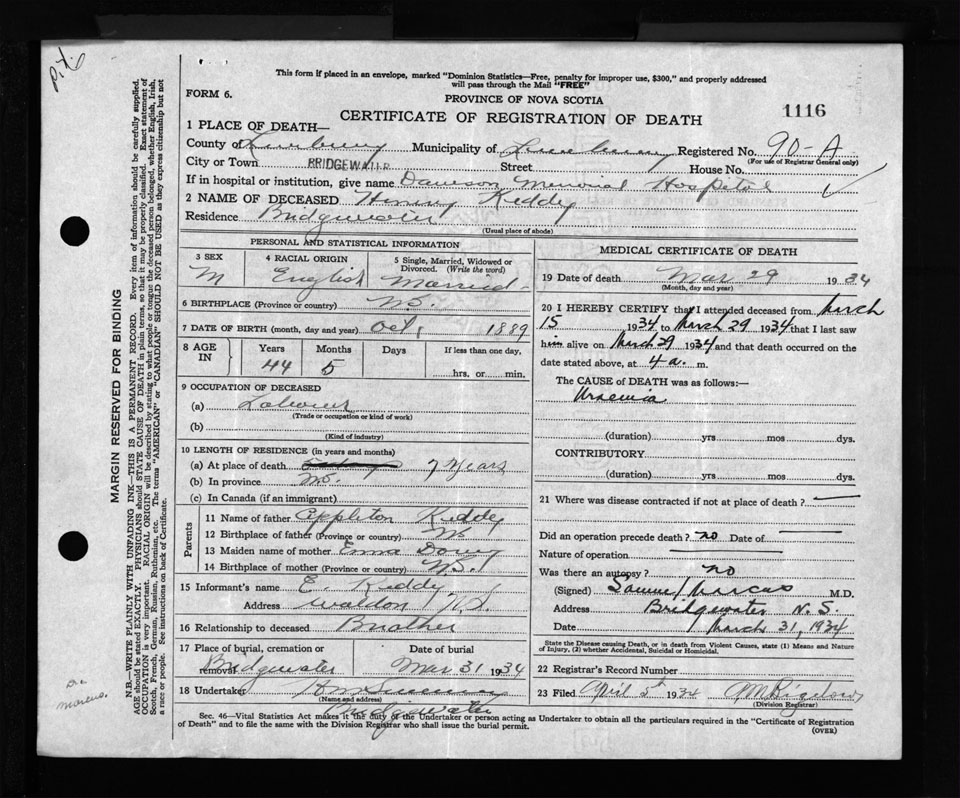 P.X.
This form if placed in an envelope, marked "Dominion Statistics—Free, penalty for improper use, $300," and properly addressed
will pass through the Mail "FREE"
FORM 6.
PROVINCE OF NOVA SCOTIA
CERTIFICATE OF REGISTRATION OF DEATH
1116
1 PLACE OF DEATH—
County of Lunenburg Municipality of Lunenburg Registered No. 90-A
(For use of Registrar General only)
City or Town BRIDGEWATER Street House No.
If in hospital or institution, give name Dawson Memorial Hospital
2 NAME OF DECEASED Henry Keddy
Residence Bridgewater
(Usual place of abode)
PERSONAL AND STATISTICAL INFORMATION
3 SEX 4 RACIAL ORIGIN 5 Single, Married, Widowed or Divorced. (Write the word)
M English Married
6 BIRTHPLACE (Province or country) N.S.
7 DATE OF BIRTH (month, day and year) Oct, 1889
8 AGE IN Years Months Days If less than one day,
44 5 hrs. or min.
9 OCCUPATION OF DECEASED
(a) Laborer
(Trade or occupation or kind of work)
(b)
(Kind of industry)
10 LENGTH OF RESIDENCE (in years and months)
(a) At place of death 7 Years
(b) In province N.S.
(c) In Canada (if an immigrant)
Parents
11 Name of father Appleton Keddy
12 Birthplace of father (Province or country) N.S.
13 Maiden name of mother Emma
14 Birthplace of mother (Province or country) N.S.
15 Informant's name E. Keddy
Address Waldon N.S.
16 Relationship to deceased Brother
17 Place of burial, cremation or removal Date of burial
Bridgewater Mar 31 1934
18 Undertaker
(Name and address)
Bridgewater
MEDICAL CERTIFICATE OF DEATH
19 Date of death Mar 29 1934
(Month, day and year)
20 I HEREBY CERTIFY that I attended deceased from March
15 1934 to March 29 1934 that I last saw
him alive on March 29 1934 and that death occurred on the
date stated above, at 4 a. m.
The CAUSE OF DEATH was as follows:—
Uraemia
(duration) yrs mos dys.
CONTRIBUTORY
(duration) yrs mos dys.
21 Where was disease contracted if not at place of death? —
Did an operation precede death? no Date of —
Nature of operation —
Was there an autopsy? no
(Signed) Samuel Marcus M.D.
Address Bridgewater N.S.
Date March 31, 1934
State the Disease causing Death, or in death from Violent Causes, state (1) Means and Nature
of Injury, (2) whether Accidental, Suicidal or Homicidal.
22 Registrar's Record Number
23 Filed April 5th 1934
(Division Registrar)
Sec. 46—Vital Statistics Act makes it the duty of the Undertaker or person acting as Undertaker to obtain all the particulars required in the "Certificate of Registration
of Death" and to file the same with the Division Registrar who shall issue the burial permit.
(OVER)
MARGIN RESERVED FOR BINDING
N.B.—WRITE PLAINLY WITH UNFADING INK—THIS IS A PERMANENT RECORD. Every item of information should be carefully supplied.
AGE should be stated EXACTLY. PHYSICIANS should STATE CAUSE OF DEATH in plain terms, so that it may be properly classified. Exact statement of
OCCUPATION is very important. RACIAL ORIGIN will be described by stating to what people or tongue the deceased person belonged, whether English, Irish,
Scotch, French, German, Russian, Ruthenian, etc. The terms "AMERICAN" or "CANADIAN" SHOULD NOT BE USED as they express citizenship but not
a race or people. See instructions on back of Certificate.